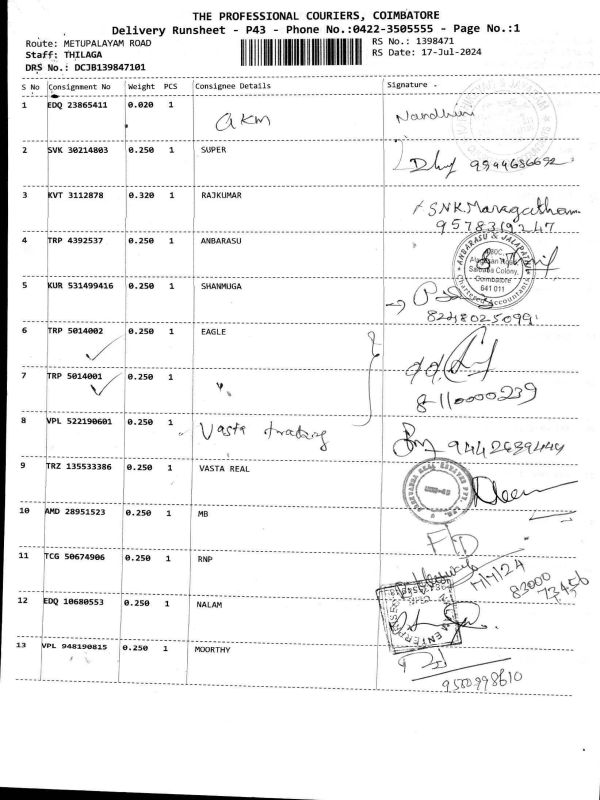 THE PROFESSIONAL COURIERS, COIMBATORE
Delivery Runsheet - P43 - Phone No.:0422-3505555 - Page No.:1
Route: METUPALAYAM ROAD RS No.: 1398471
Staff: THILAGA RS Date: 17-Jul-2024
DRS No.: DCJB139847101
S No Consignment No Weight PCS Consignee Details Signature
1 EDQ 23865411 0.020 1 AKM Nandhini
2 SVK 30214803 0.250 1 SUPER 9944686692
3 KVT 3112878 0.320 1 RAJKUMAR SNK.Maragatham
9578319247
4 TRP 4392537 0.250 1 ANBARASU
ANBARASU & JALAPATHI
Saibaba Colony,
Coimbatore
641 011
Chartered Accountants
5 KUR 531499416 0.250 1 SHANMUGA
8248025099
6 TRP 5014002 0.250 1 EAGLE
7 TRP 5014001 0.250 1 "
8110000239
8 VPL 522190601 0.250 1 Vasta trading 9442639449
9 TRZ 135533386 0.250 1 VASTA REAL
10 AMD 28951523 0.250 1 MB
11 TCG 50674906 0.250 1 RNP
17/7/24
83000
73456
12 EDQ 10680553 0.250 1 NALAM
13 VPL 948190815 0.250 1 MOORTHY
9580998610